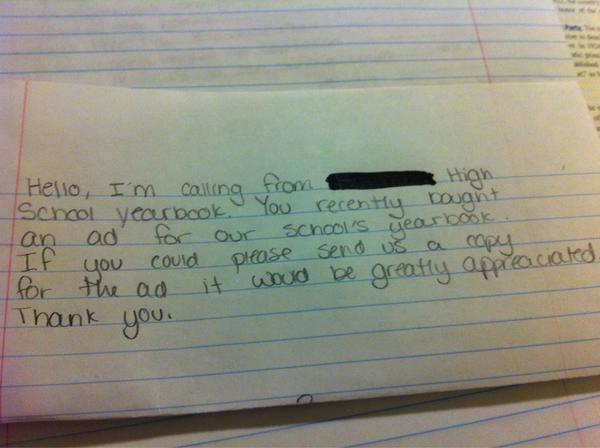 Hello, I'm calling from High
School yearbook. You recently bought
an ad for our school's yearbook.
If you could please send us a copy
for the ad it would be greatly appreaciated.
Thank you.